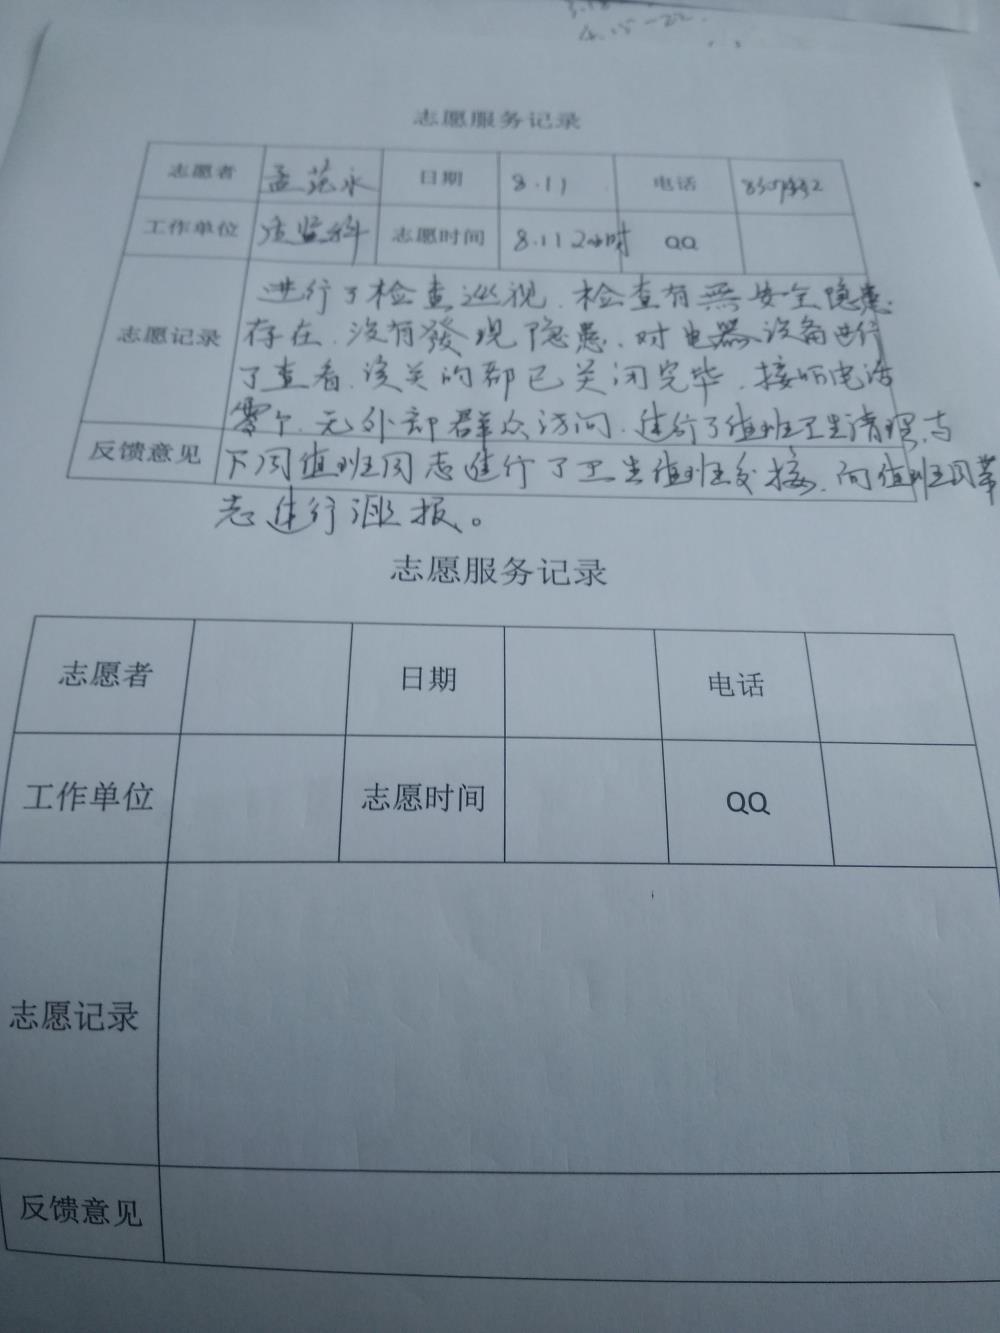 4.15-22.
志愿服务记录
志愿者 孟范永 日期 8.11 电话
工作单位 法监科 志愿时间 8.11 2小时 QQ
进行了检查巡视、检查有無安全隐患
志愿记录 存在、没有發现隐患、对电器设备进行
了查看、该关的都已关闭完毕、接听电话
零个、无外部群众访问、进行了值班卫生清理、与
反馈意见 下周值班同志进行了卫生值班交接、向值班同
志进行汇报。
志愿服务记录
志愿者 日期 电话
工作单位 志愿时间 QQ
志愿记录
反馈意见